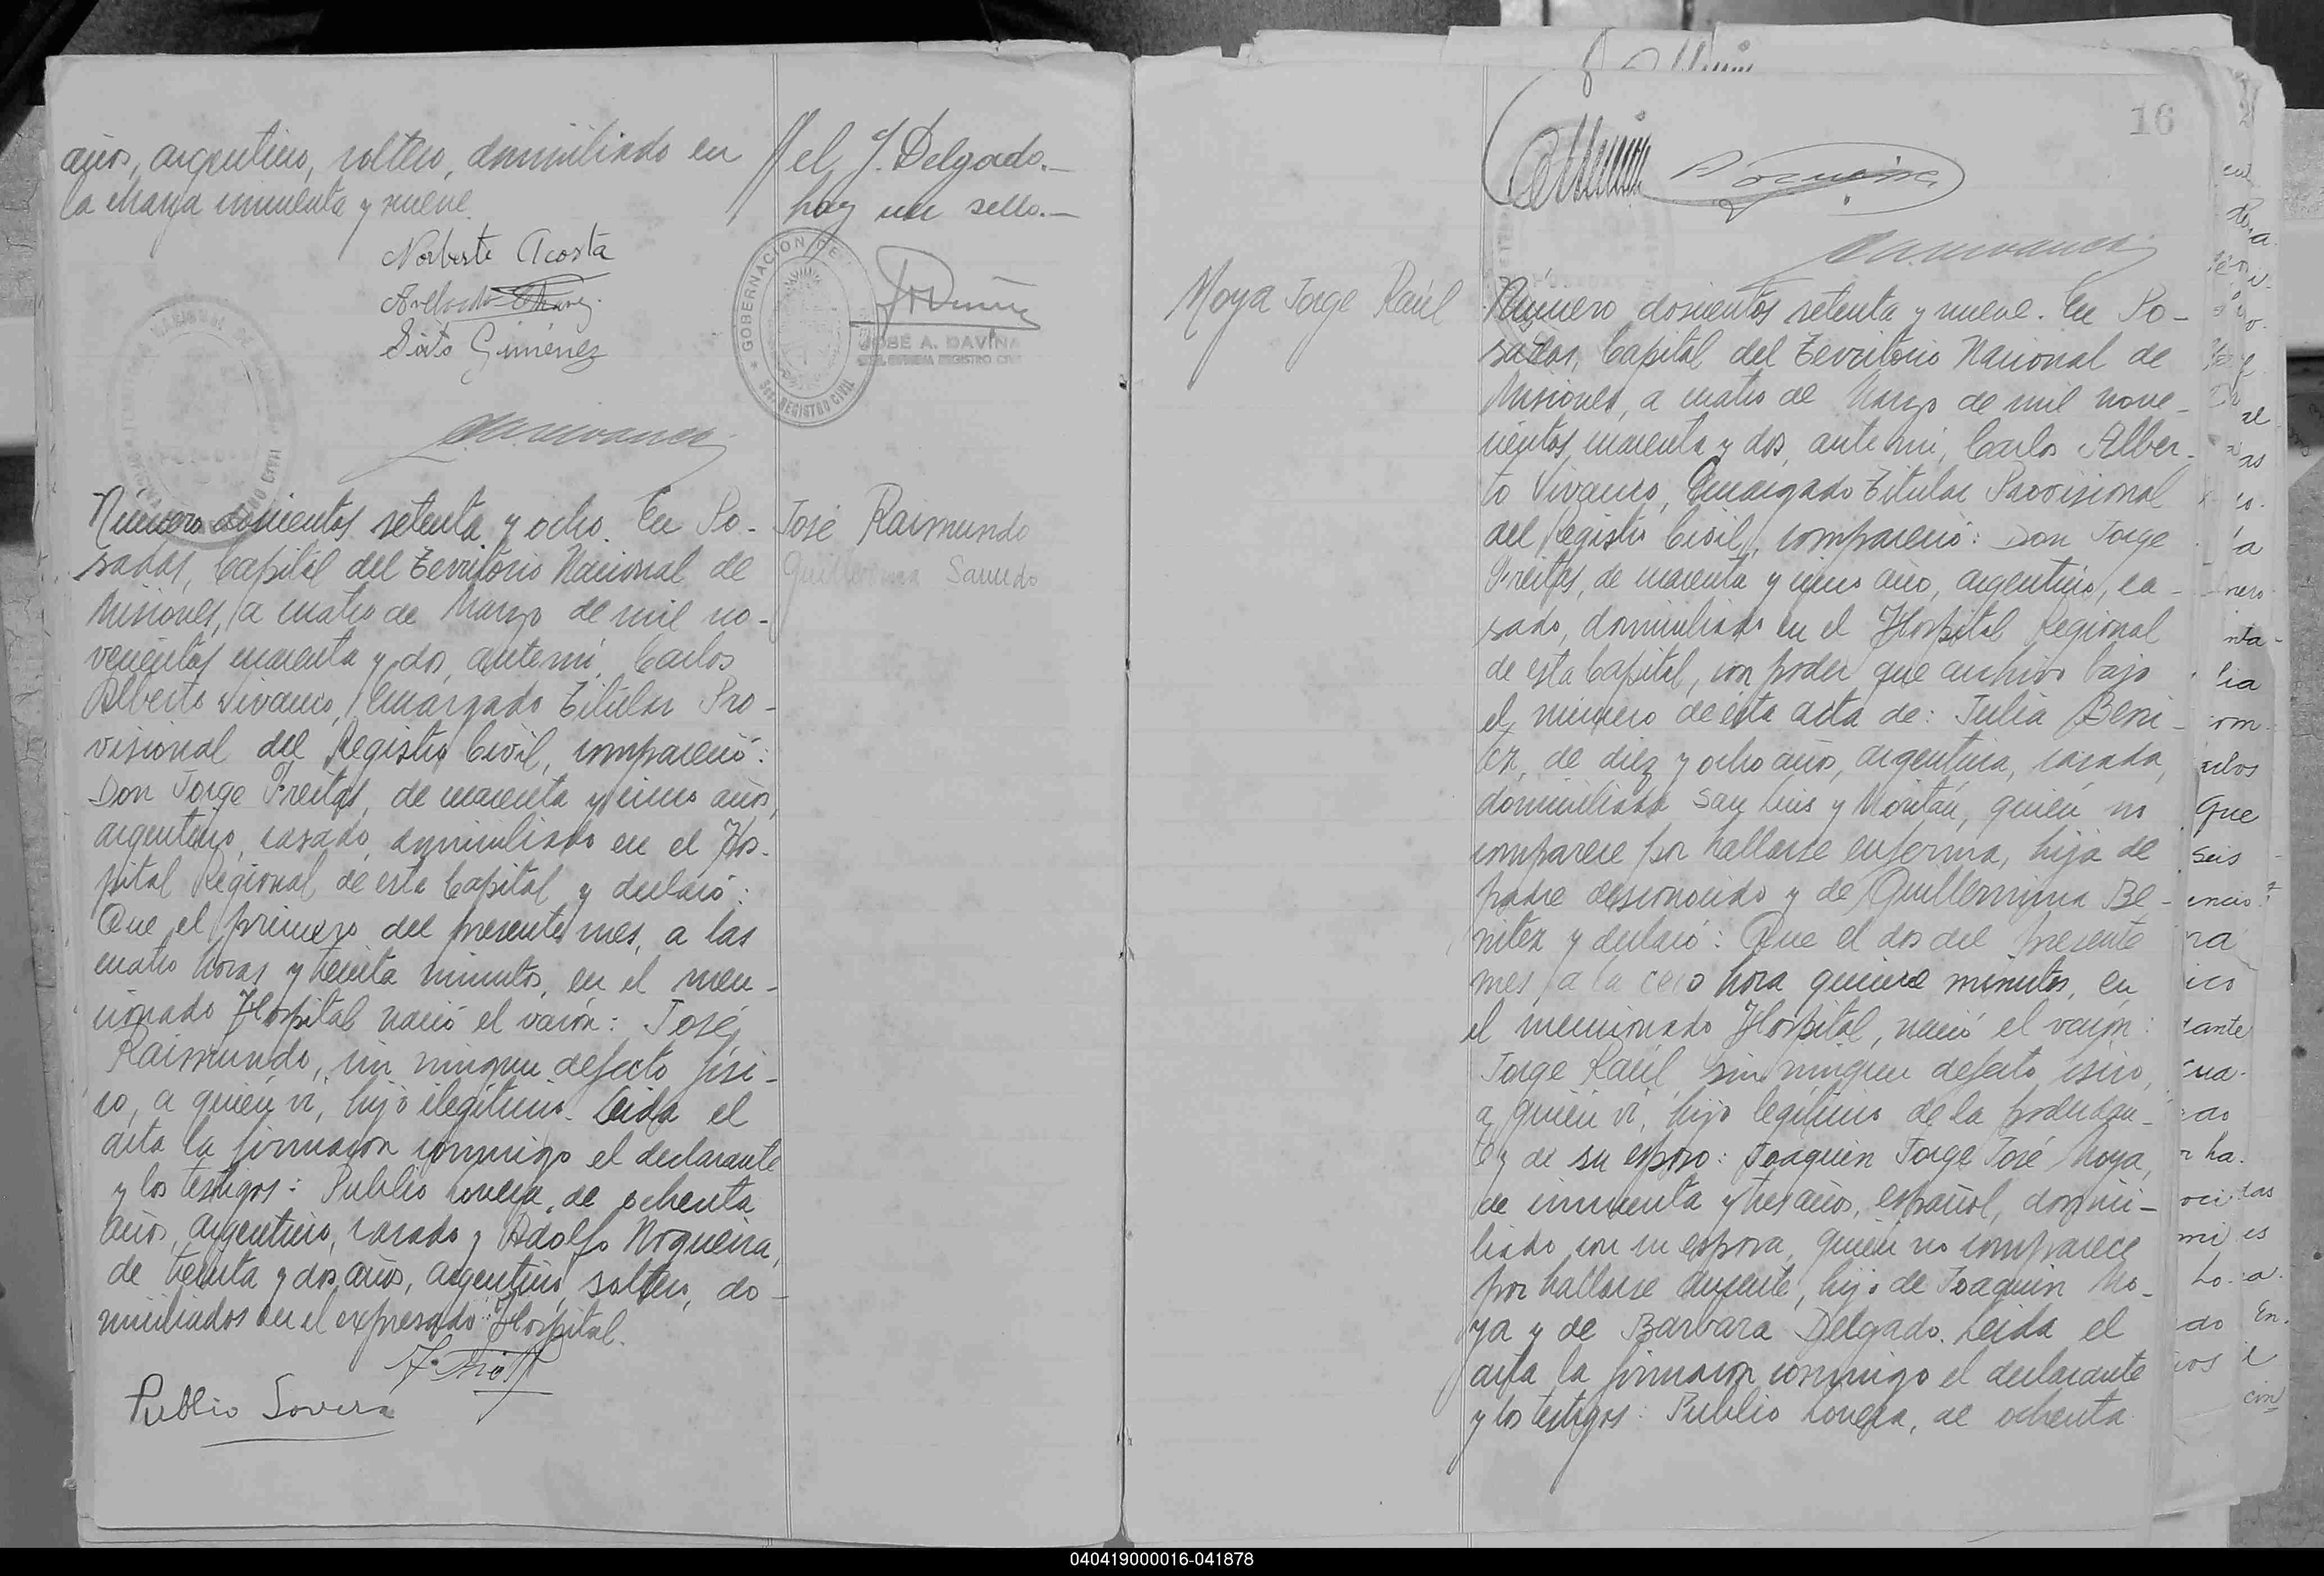 años, argentino, soltero, domiciliado en
la chacra cincuenta y nueve.
Norberto Acosta
Sixto Giménez
Número doscientos setenta y ocho. En Po-
sadas, Capital del Territorio Nacional de
Misiones, a cuatro de Marzo de mil no-
vecientos cuarenta y dos, ante mi, Carlos
Alberto Vivanco, Encargado Titular Pro-
visional del Registro Civil, compareció:
Don Jorge Freitas, de cuarenta y cinco años,
argentino, casado, domiciliado en el Hos-
pital Regional de esta Capital y declaró:
Que el primero del presente mes, a las
cuatro horas y treinta minutos, en el men-
cionado Hospital nació el varón: José
Raimundo, sin ningun defecto físi-
co, a quién ví, hijo ilegítimo. Leida el
acta la firmaron conmigo el declarante
y los testigos: Publio Lovera, de ochenta
años, argentino, casado y Adolfo Nogueira,
de treinta y dos años, argentino, soltero, do-
miciliados en el expresado Hospital.
Publio Lovera
el J. Delgado.-
hay un sello.-
GOBERNACION DE
REGISTRO CIVIL
JOSE A. DAVIÑA
José Raimundo
Guillermina Samudo
16
Moya Jorge Raúl
Número doscientos setenta y nueve. En Po-
sadas, Capital del Territorio Nacional de
Misiones, a cuatro de Marzo de mil nove-
cientos cuarenta y dos, ante mi, Carlos Alber-
to Vivanco, Encargado Titular Provisional
del Registro Civil, compareció: Don Jorge
Freitas, de cuarenta y cinco año, argentino, ca-
sado, domiciliado en el Hospital Regional
de esta Capital, con poder que archivo bajo
el número de ésta acta de: Julia Beni-
tez, de diez y ocho años, argentina, casada,
domiciliada San Luis y Moritán, quién no
comparece por hallarse enferma, hija de
padre desconocido y de Guillermina Be-
nitez y declaró: Que el dos del presente
mes, a la cero hora quince minutos, en
el mencionado Hospital, nació el varón:
Jorge Raúl, sin ningun defecto físico,
a quién ví, hijo legítimo de la poderdan-
te y de su esposo: Joaquin Jorge José Moya,
de cincuenta y tres años, español, domici-
liado con su esposa, quién no comparece
por hallarse ausente, hijo de Joaquin Mo-
ya y de Barbara Delgado. Leida el
acta la firmaron conmigo el declarante
y los testigos: Publio Lovera, de ochenta
040419000016-041878